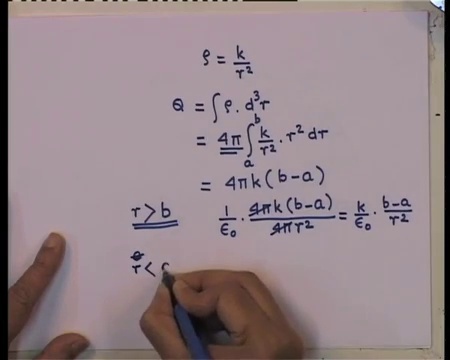 ρ = k/r²
Q = ∫ ρ. d³r
= 4π ∫ₐᵇ k/r² · r² dr
= 4πk(b-a)
r>b 1/ϵ₀ · 4πk(b-a)/4πr² = k/ϵ₀ · b-a/r²
r<